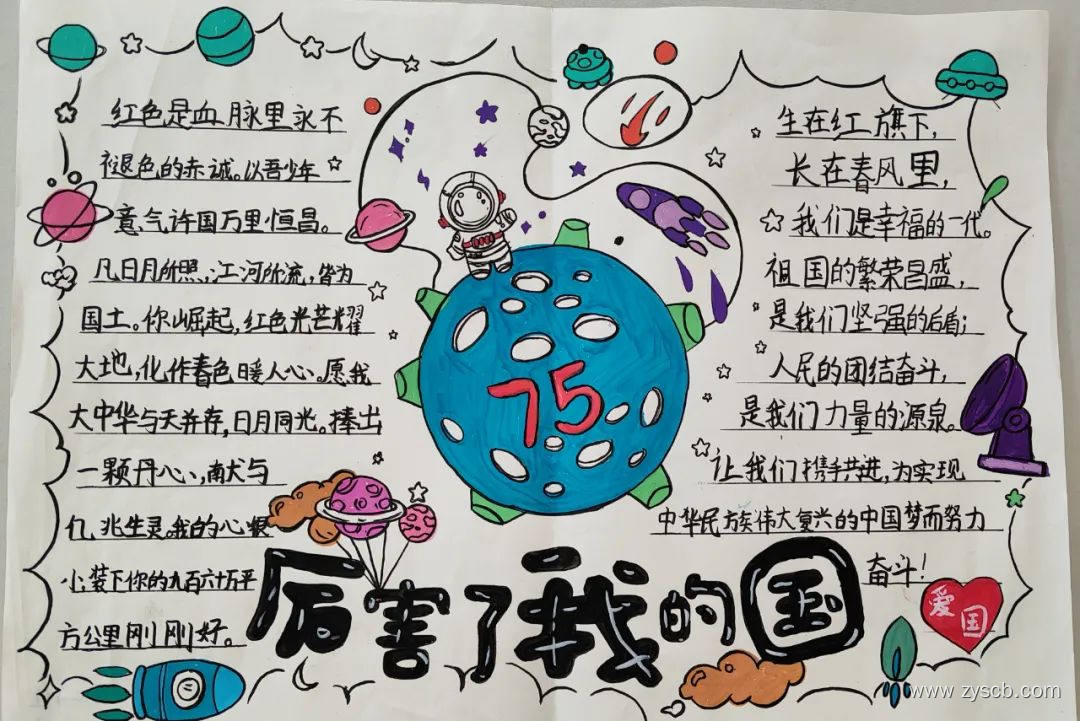 红色是血脉里永不
褪色的赤诚。以吾少年
意气许国万里恒昌。
凡日月所照,江河所流,皆为
国土。你崛起,红色光芒耀
大地,化作春色暖人心。愿我
大中华与天并存,日月同光。捧出
一颗丹心,献与
亿兆生灵。我的心很
小,装下你的九百六十万平
方公里刚刚好。
75
厉害了我的国
生在红旗下,
长在春风里,
我们是幸福的一代。
祖国的繁荣昌盛,
是我们坚强的后盾;
人民的团结奋斗,
是我们力量的源泉。
让我们携手共进,为实现
中华民族伟大复兴的中国梦而努力
奋斗!
爱国
www.zyscb.com